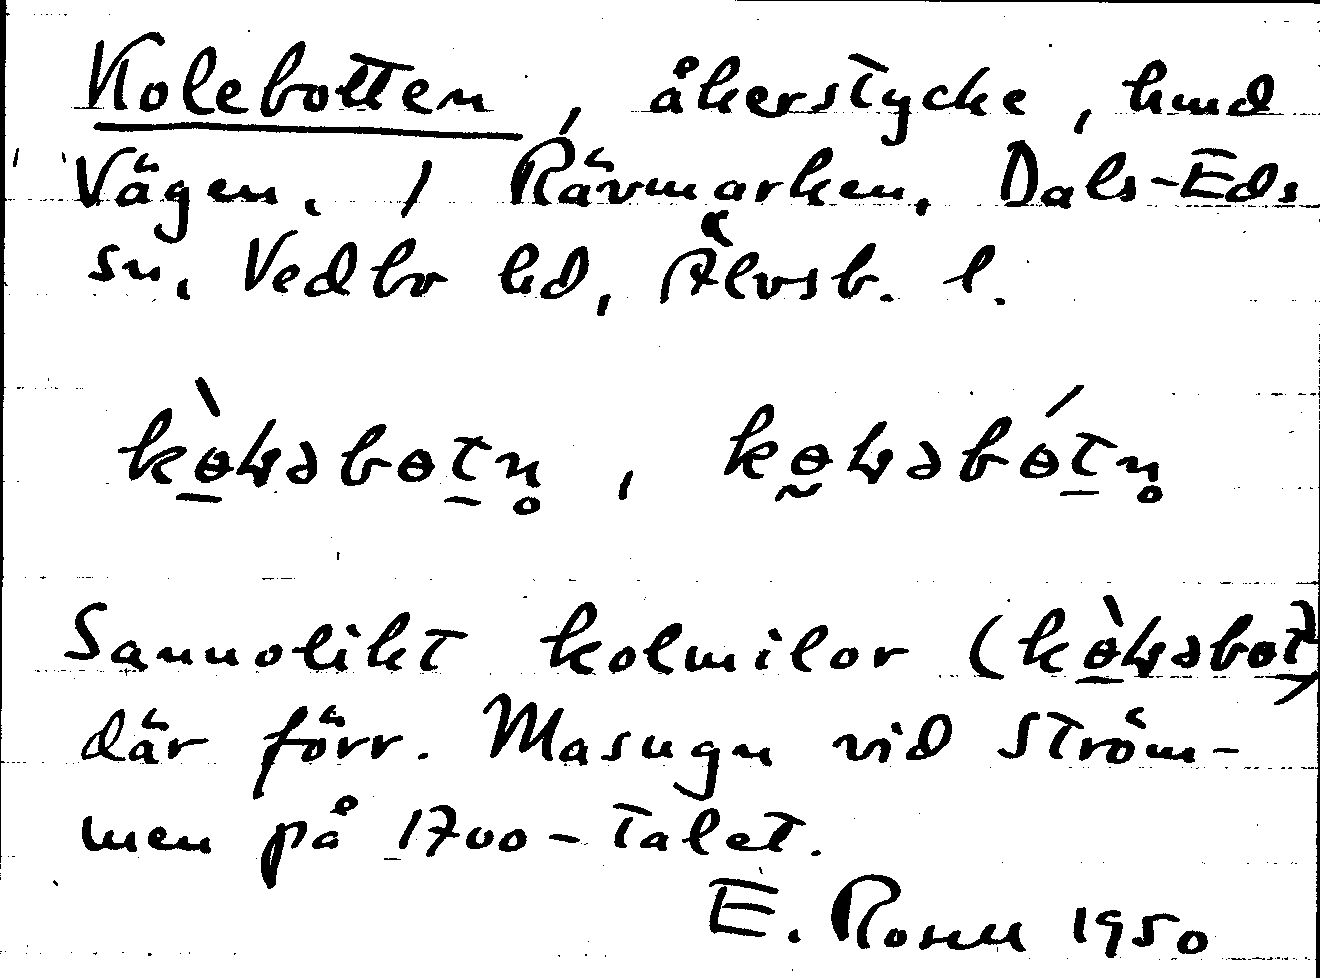 Kolebotten, åkerstycke, hmd
Vägen, 1 Rävmarken, Dals-Eds
sn, Vedbo hd, Älvsb. l.
kɵ̀ɽəbotn̥, kɵɽəbótn̥
Sannolikt kolmilor (kɵ̀ɽəbot)
där förr. Masugn vid Ström-
men på 1700-talet.
E. Rosell 1950